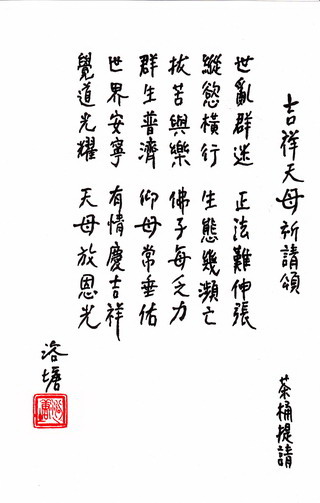 吉祥天母祈請頌
茶桶提請
世亂群迷 正法難伸張
縱慾橫行 生態幾瀕亡
拔苦與樂 佛子每乏力
群生普濟 仰母常垂佑
世界安寧 有情慶吉祥
覺道光耀 天母放恩光
洛塘